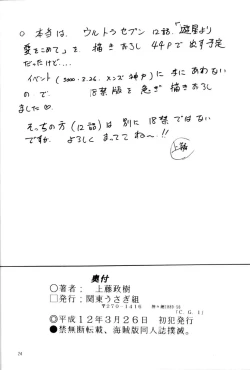 ○ 本当は、ウルトラセブン 12話、「遊星より
愛をこめて」を、描きおろし 44Pで 出す予定
だったけど…
イベント (2000.2.26. メンズ 神戸) に まにあわない
ので、 18禁版を急ぎ描きおろし
ました
そっちの方 (12話) は 別に 18禁では ない
ですが、よろしく まってて ね〜!!
上藤
奥付
○著者: 上藤政樹
□発行: 関東うさぎ組
〒270-1416
(C.G.1)
◎平成12年3月26日 初犯発行
●禁無断転載、海賊版同人誌撲滅。